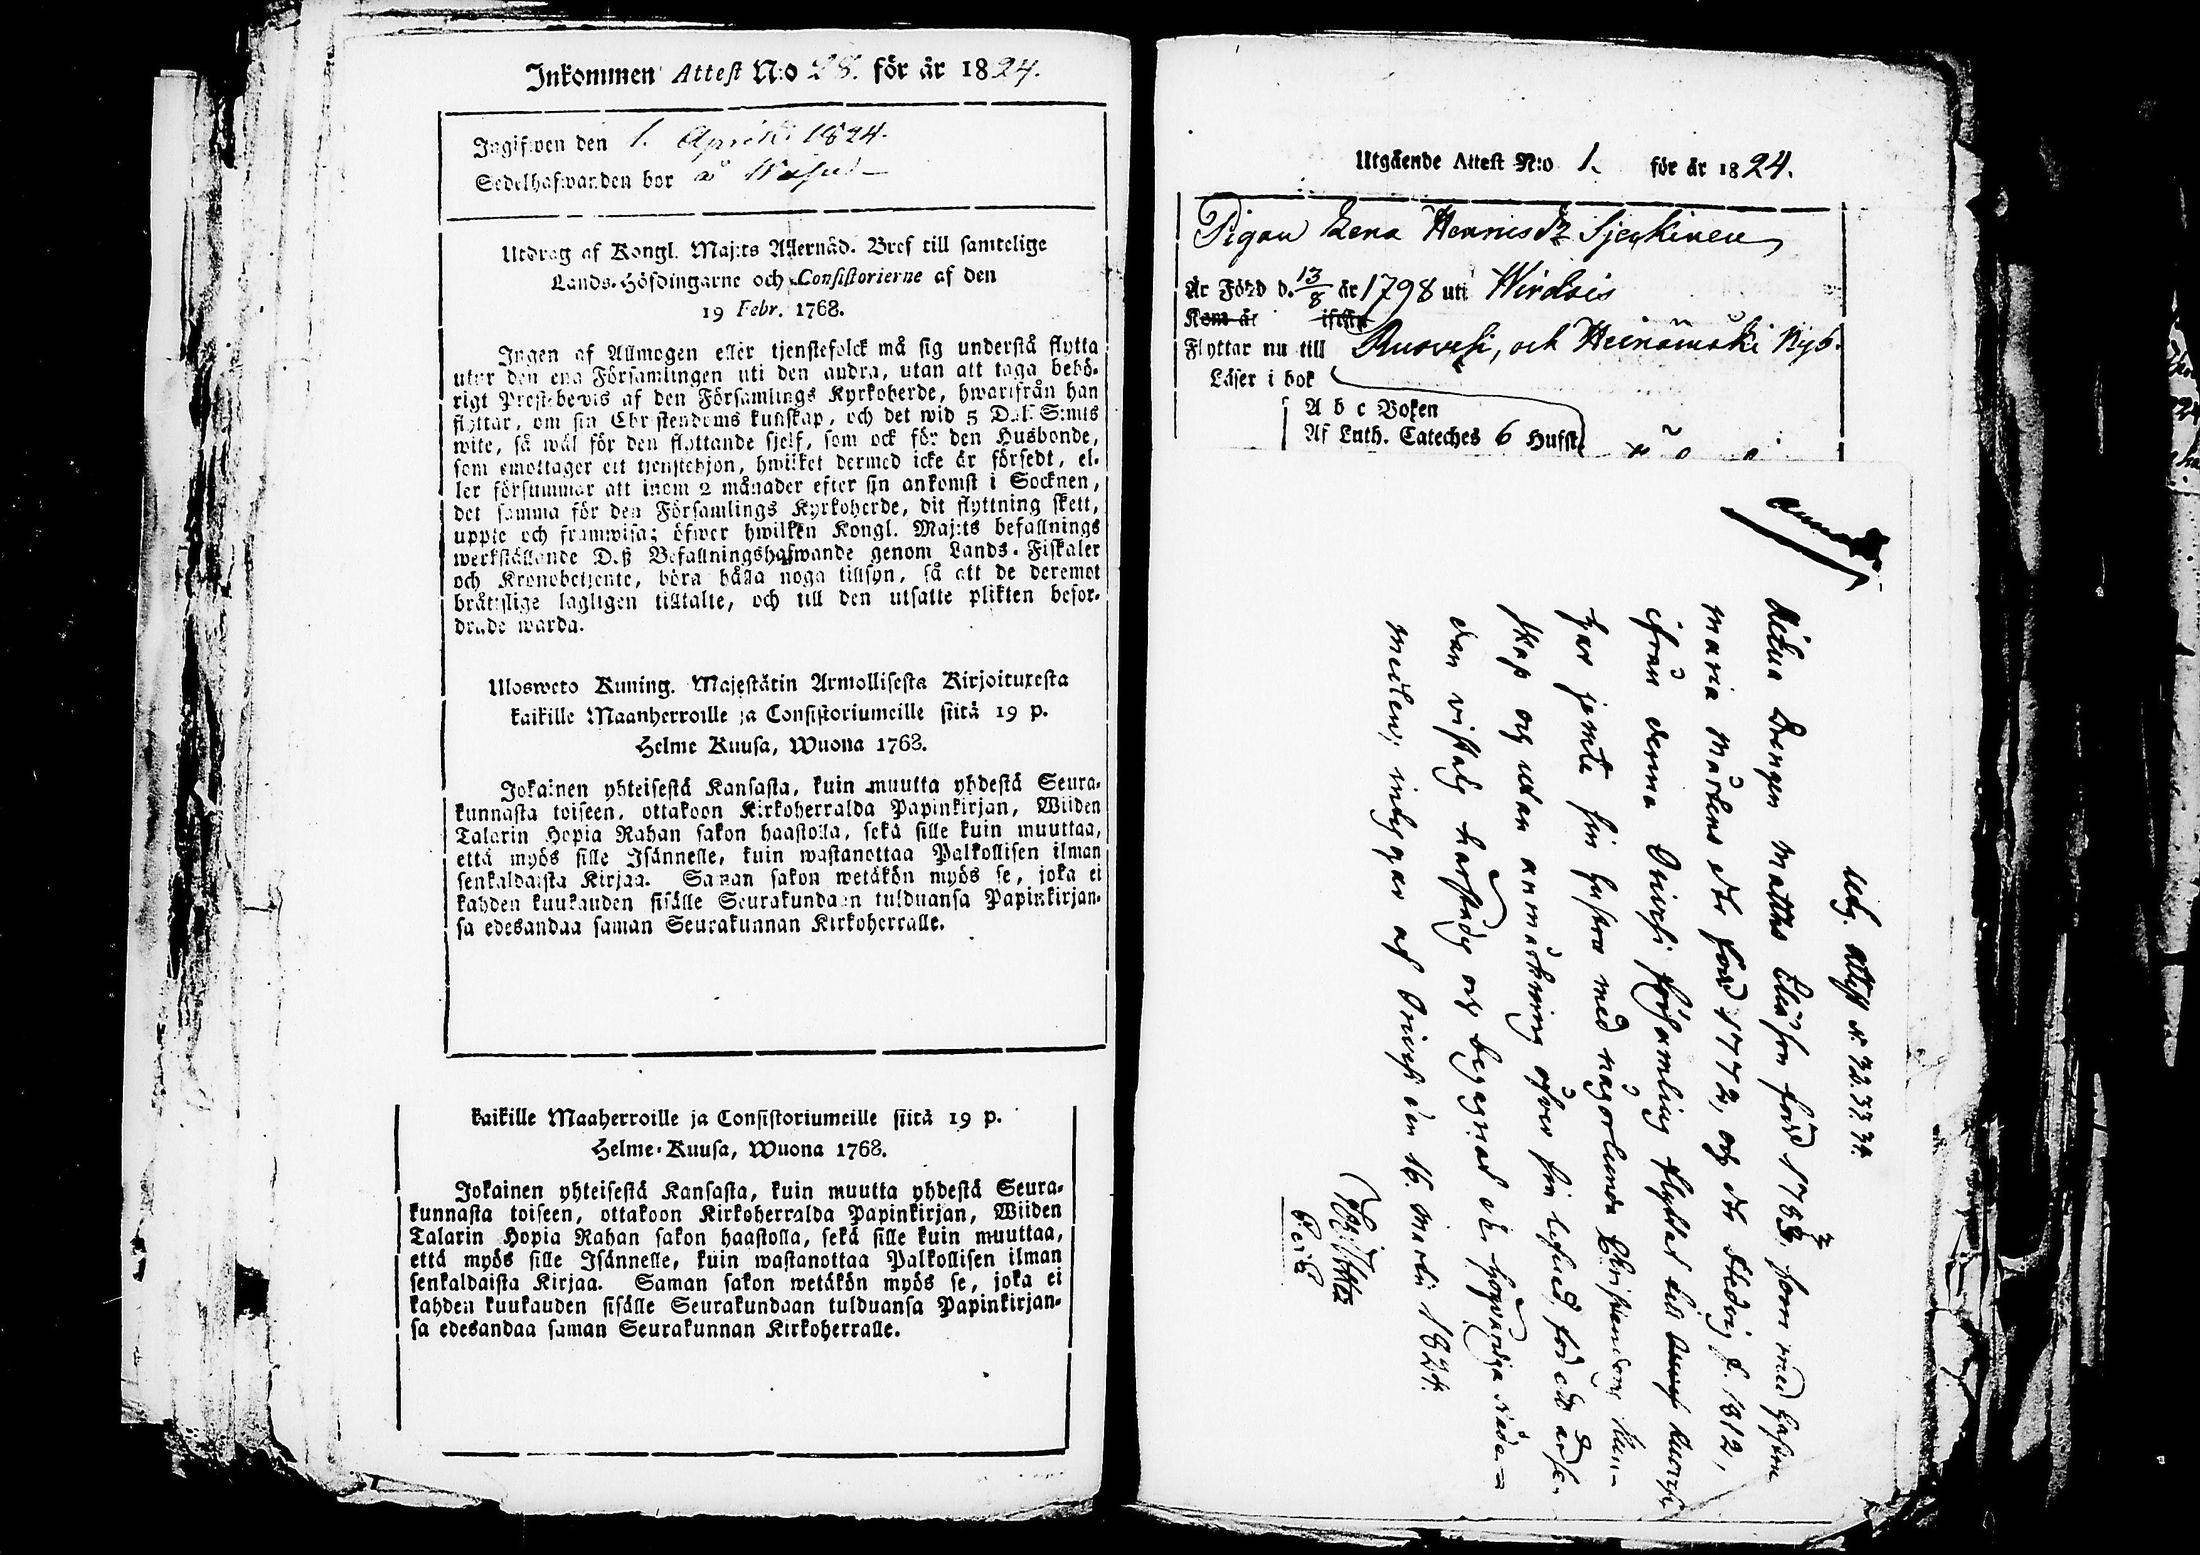 Inkommen Attest N:o 28. för år 1824.
Ingifwen den 1. Aprill 1824.
Sedelhafwanden bor å
Utdrag af Kongl. Maj:ts Allernåd. Bref till samtelige
Lands-Höfdingarne och Consistorierne af den
19 Febr. 1768.
Ingen af Allmogen eller tjenstefolck må sig understå flytta
utur den ena Församlingen uti den andra, utan att taga behö-
rigt Prestebewis af den Församlings Kyrkoherde, hwarifrån han
flyttar, om sin Christendoms kunskap, och det wid 5 Dal. S:mts
wite, så wäl för den flyttande sjelf, som ock för den Husbonde,
som emottager ett tjenstehjon, hwilket dermed icke är försedt, el-
ler försummar att inom 2 månader efter sin ankomst i Socknen,
det samma för den Församlings Kyrkoherde, dit flyttning skett,
uppte och framwisa; öfwer hwilken Kongl. Maj:ts befallnings
werkställande D:ß Befallningshafwande genom Lands-Fiskaler
och Kronobetjente, böra hålla noga tillsyn, så att de deremot
bråttslige lagligen tilltalte, och till den utsatte plikten befor-
drade warda.
Ulosweto Kuning. Majestätin Armollisesta Kirjoituxesta
kaikille Maanherroille ja Consistoriumeille siitä 19 p.
Helme Kuusa, Wuona 1768.
Jokainen yhteisestä Kansasta, kuin muutta yhdestä Seura-
kunnasta toiseen, ottakoon Kirkoherralda Papinkirjan, Wiiden
Talarin Hopia Rahan sakon haastolla, sekä sille kuin muuttaa,
että myös sille Isännelle, kuin wastanottaa Palkollisen ilman
senkaldaista Kirjaa. Saman sakon wetäkön myös se, joka ei
kahden kuukauden sisälle Seurakundaan tulduansa Papinkirjan-
sa edesandaa saman Seurakunnan Kirkoherralle.
kaikille Maaherroille ja Consistoriumeille siitä 19 p.
Helme-Kuusa, Wuona 1768.
Jokainen yhteisestä Kansasta, kuin muutta yhdestä Seura-
kunnasta toiseen, ottakoon Kirkoherralda Papinkirjan, Wiiden
Talarin Hopia Rahan sakon haastolla, sekä sille kuin muuttaa,
että myös sille Isännelle, kuin wastanottaa Palkollisen ilman
senkaldaista Kirjaa. Saman sakon wetäkön myös se, joka ei
kahden kuukauden sisälle Seurakundaan tulduansa Papinkirjan-
sa edesandaa saman Seurakunnan Kirkoherralle.
Utgående Attest N:o 1. för år 1824.
Pigan Lena Hennisdr
Är Född d. 13/8 år 1798 uti Wirdois
Kom år ifrån
Flyttar nu till Ruovesi, och Heinämäki Nyb.
Läser i bok
A b c Boken
Af Luth. Cateches 6 Hufst.
Utg. Attest N. 32. 33. 34.
Drengen Matths född 1783, som med hustru
Maria Mårtens dr född 1772, och dr Hedvig f. 1812,
ifrån denna Orivesi församling flyttat till Ruovesi
har jemte sin hustru med någorlunda Christendoms kun-
skap och utan anmärkning öfver sin lefnad, för
dan vistats och begagnat de
medlen; intygar af Orivesi den 16. Martii 1824.